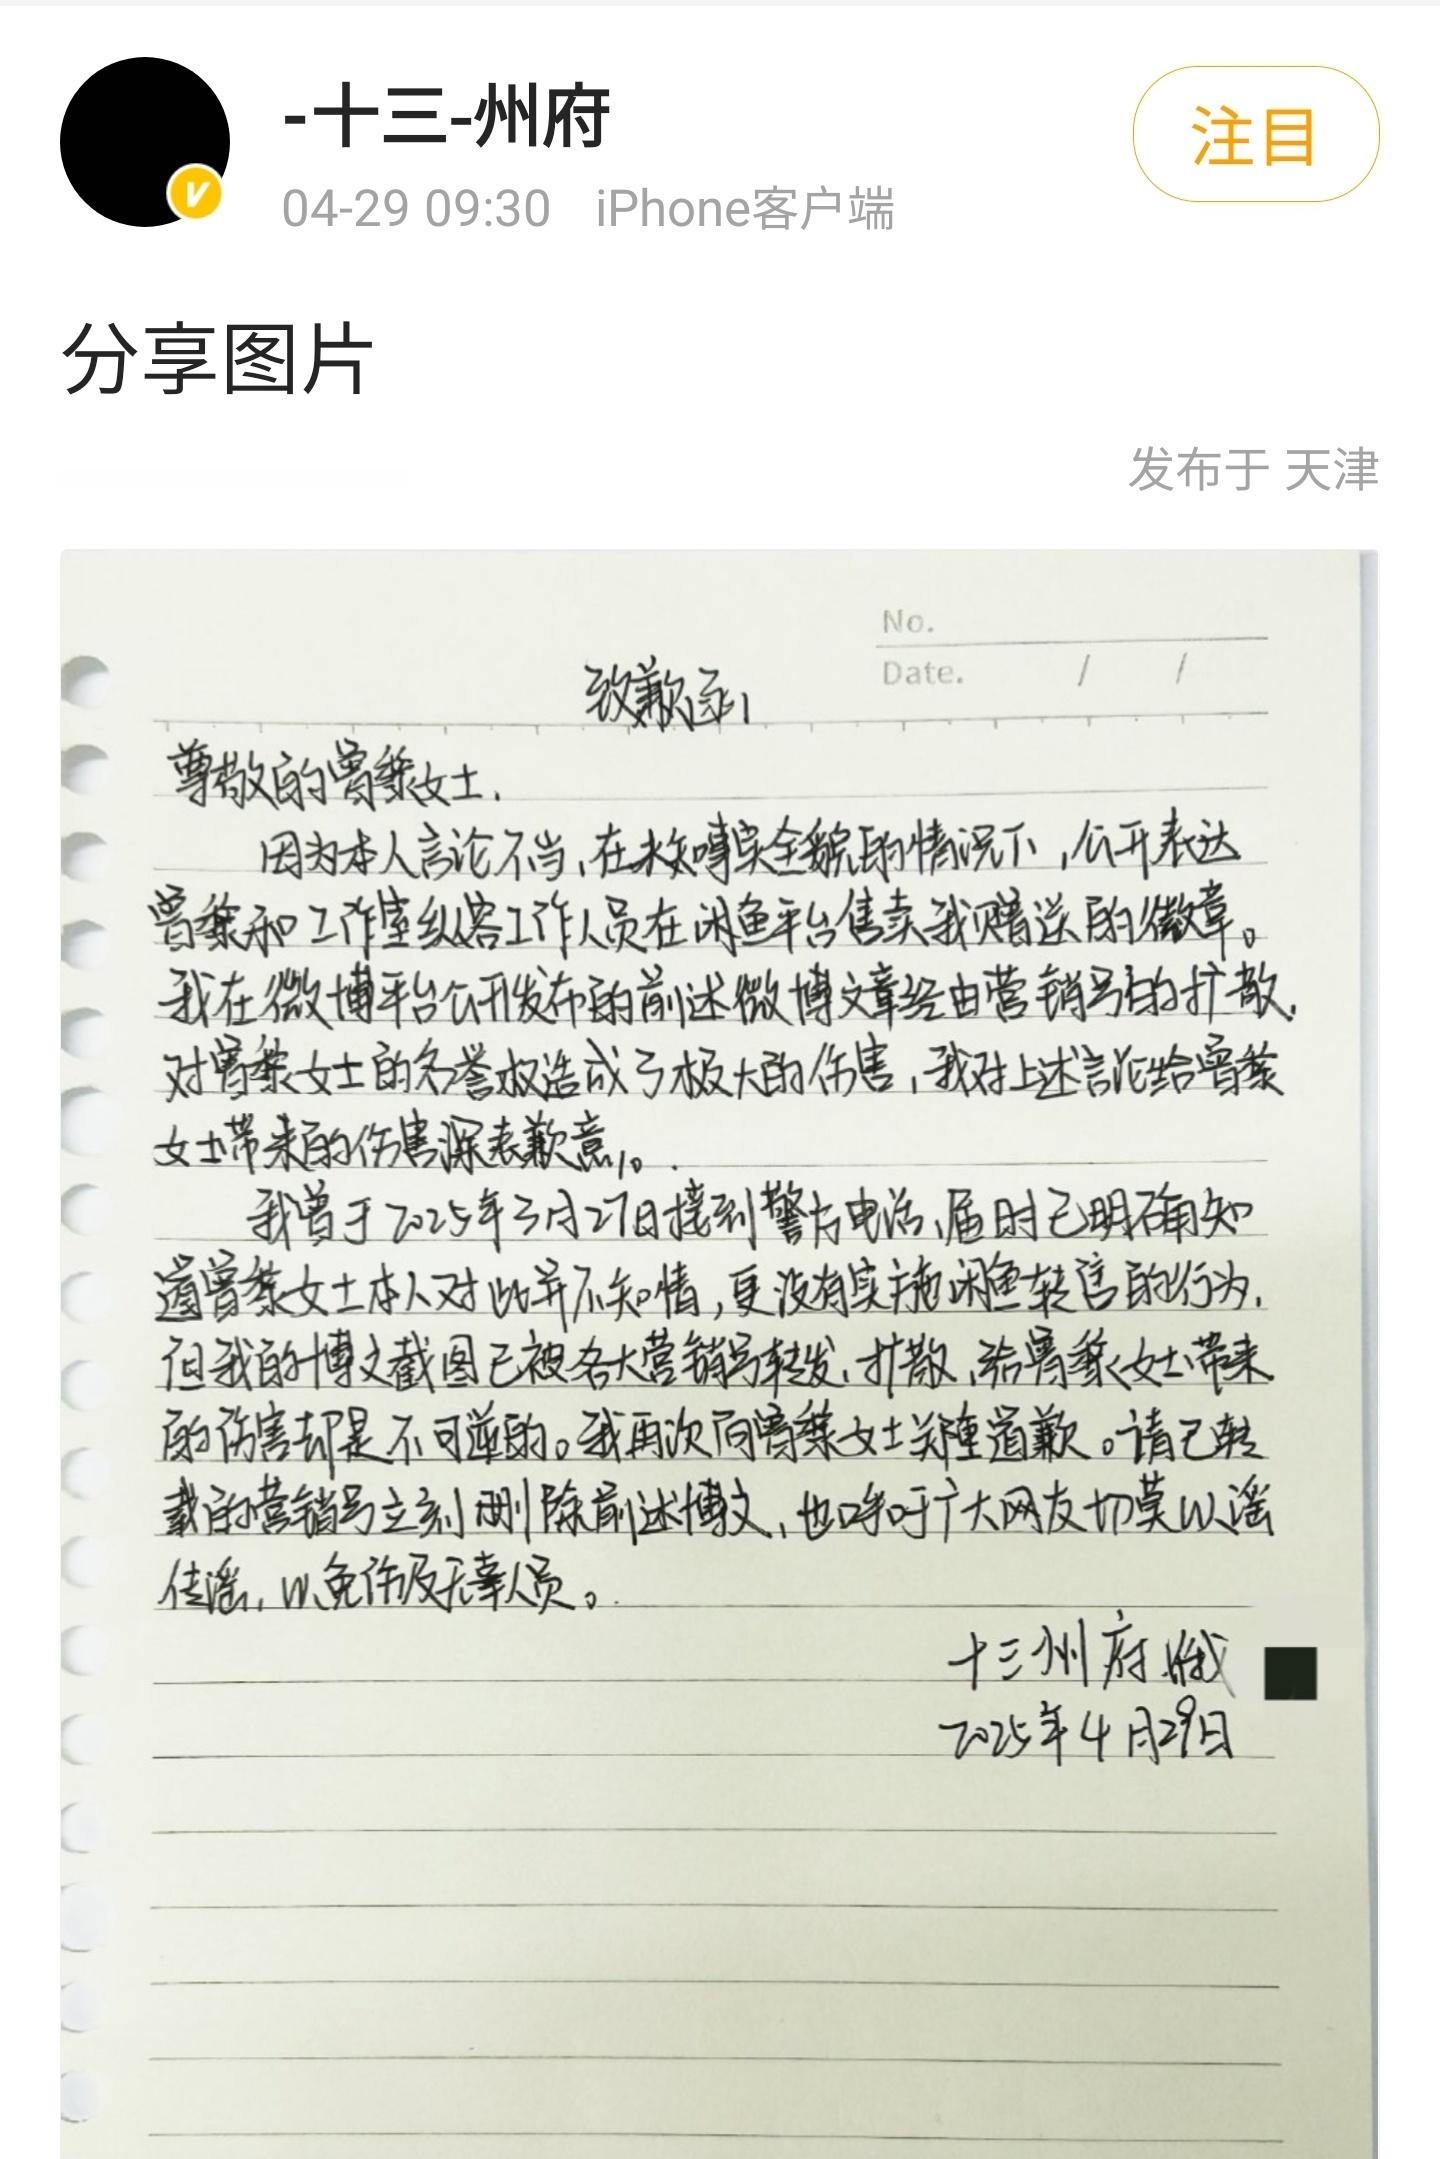 -十三-州府
注目
04-29 09:30 iPhone客户端
分享图片
发布于 天津
No.
Date. / /
致歉函
尊敬的曾黎女士,
因为本人言论不当,在未知事实全貌的情况下,公开表达
曾黎和工作室纵容工作人员在闲鱼平台售卖我赠送的徽章。
我在微博平台公开发布的前述微博文章经由营销号的扩散,
对曾黎女士的名誉权造成了极大的伤害,我对上述言论给曾黎
女士带来的伤害深表歉意。
我曾于2025年3月27日接到警方电话,届时已明确知
道曾黎女士本人对此并不知情,更没有实施闲鱼转售的行为,
但我的博文截图已被各大营销号转发,扩散,给曾黎女士带来
的伤害却是不可逆的。我再次向曾黎女士郑重道歉。请已转
载的营销号立刻删除前述博文,也呼吁广大网友切莫以谣
传谣,以免伤及无辜人员。
十三州府
2025年4月29日